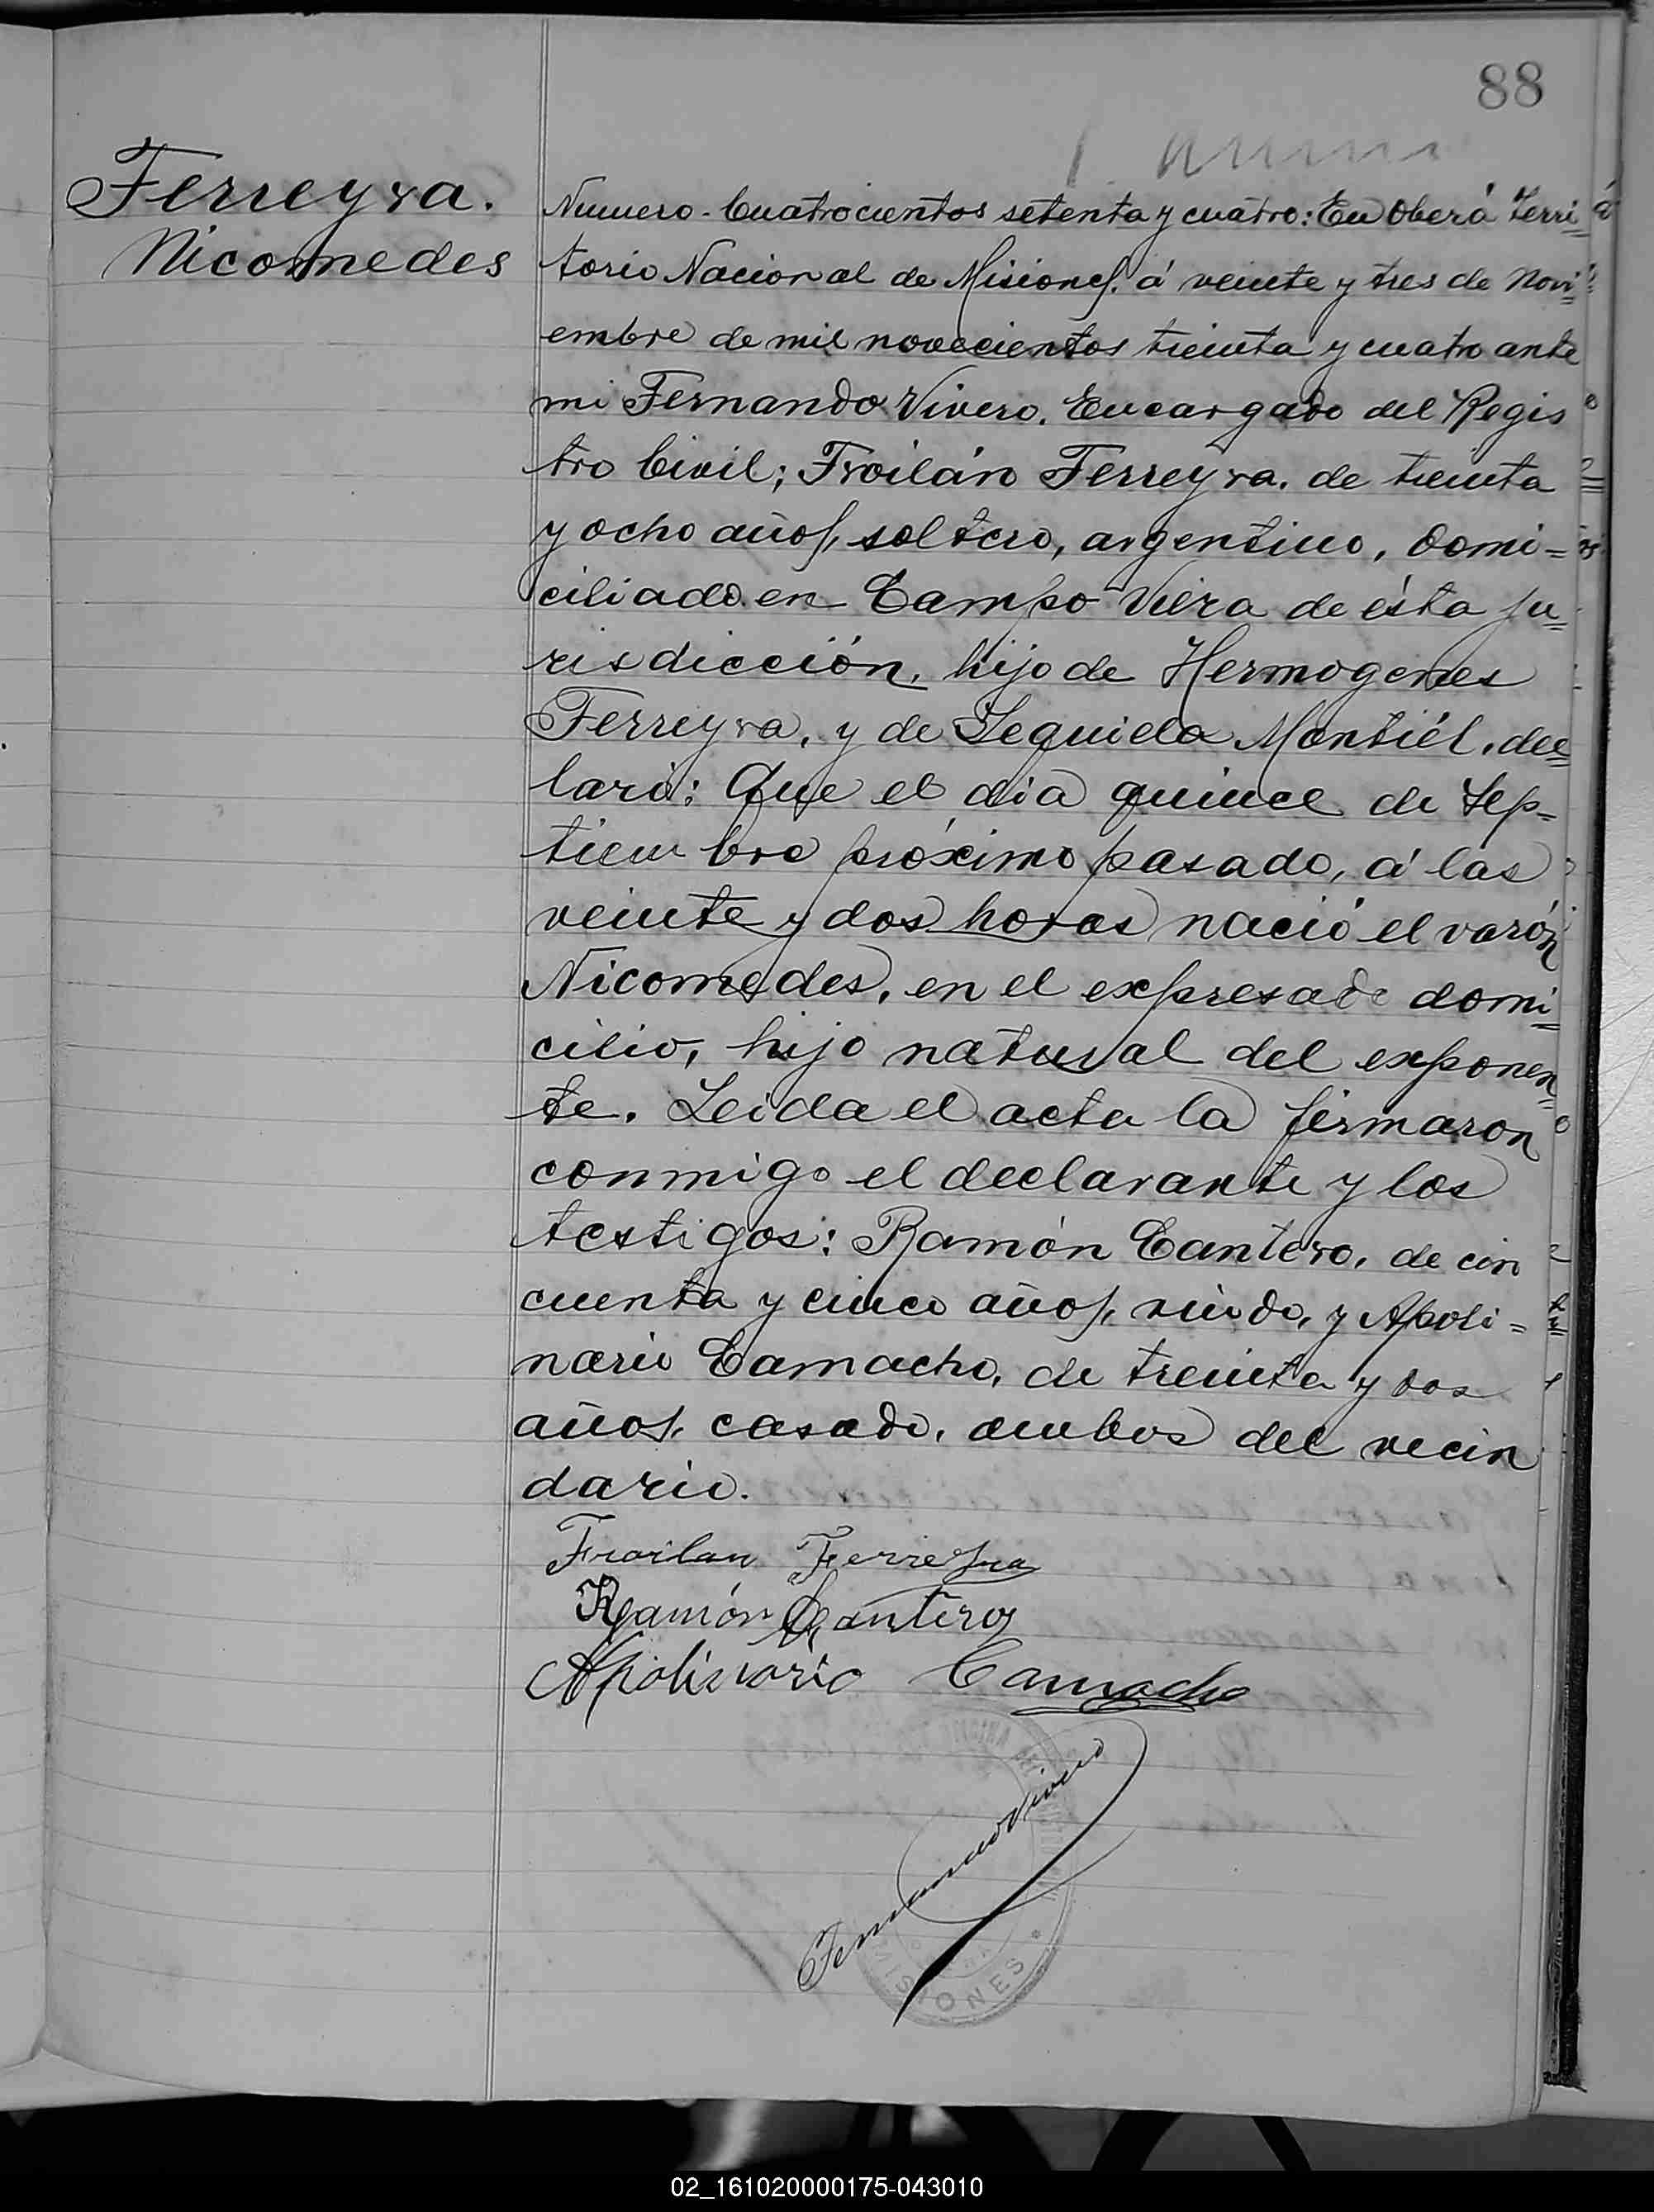 88
Ferreyra.
Nicomedes
Numero-Cuatrocientos setenta y cuatro: En Oberá Terri=
torio Nacional de Misiones. á veinte y tres de Novi=
embre de mil novecientos treinta y cuatro ante
mi Fernando Vivero. Encargado del Regis
tro Civil; Froilán Ferreyra. de treinta
y ocho años, soltero, argentino, domi=
ciliado en Campo Viera de ésta ju=
risdicción, hijo de Hermogenes
Ferreyra, y de Montiél, dec=
laró: Que el dia quince de Sep=
tiembre próximo pasado, á las
veinte y dos horas nació el varón
Nicomedes, en el expresado domi=
cilio, hijo natural del exponen=
te. Leida el acta la firmaron
conmigo el declarante y los
testigos: Ramón Cantero, de cin
cuenta y cinco años, viudo, y Apoli=
nario Camacho, de treinta y dos
años, casado, ambos del vecin
dario.
Froilan Ferreyra
Ramón Cantero
Apolinario Camacho
Fernando Vivero
MISIONES
02_161020000175-043010